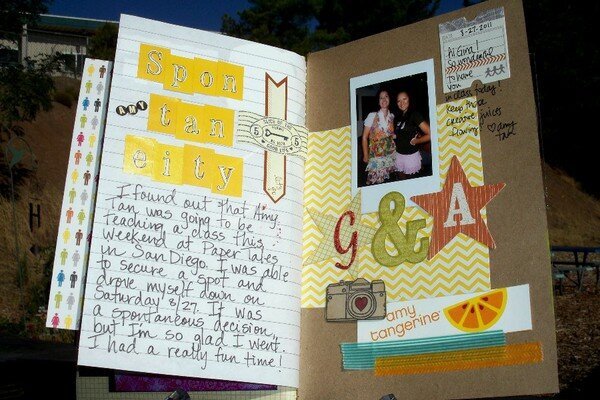 Spon
AMY
tan
eity
5 5
I found out that Amy
Tan was going to be
teaching a class this
weekend at Paper Tales
in San Diego. I was able
to secure a spot and
drove myself down on
Saturday 8/27. It was
a spontaneous decision,
but I'm so glad I went.
I had a really fun time!
8-27-2011
Hi Gina!
So wonderful
to have
you
in class today!
Keep those
creative juices
flowing!
amy
tan
G & A
amy
tangerine